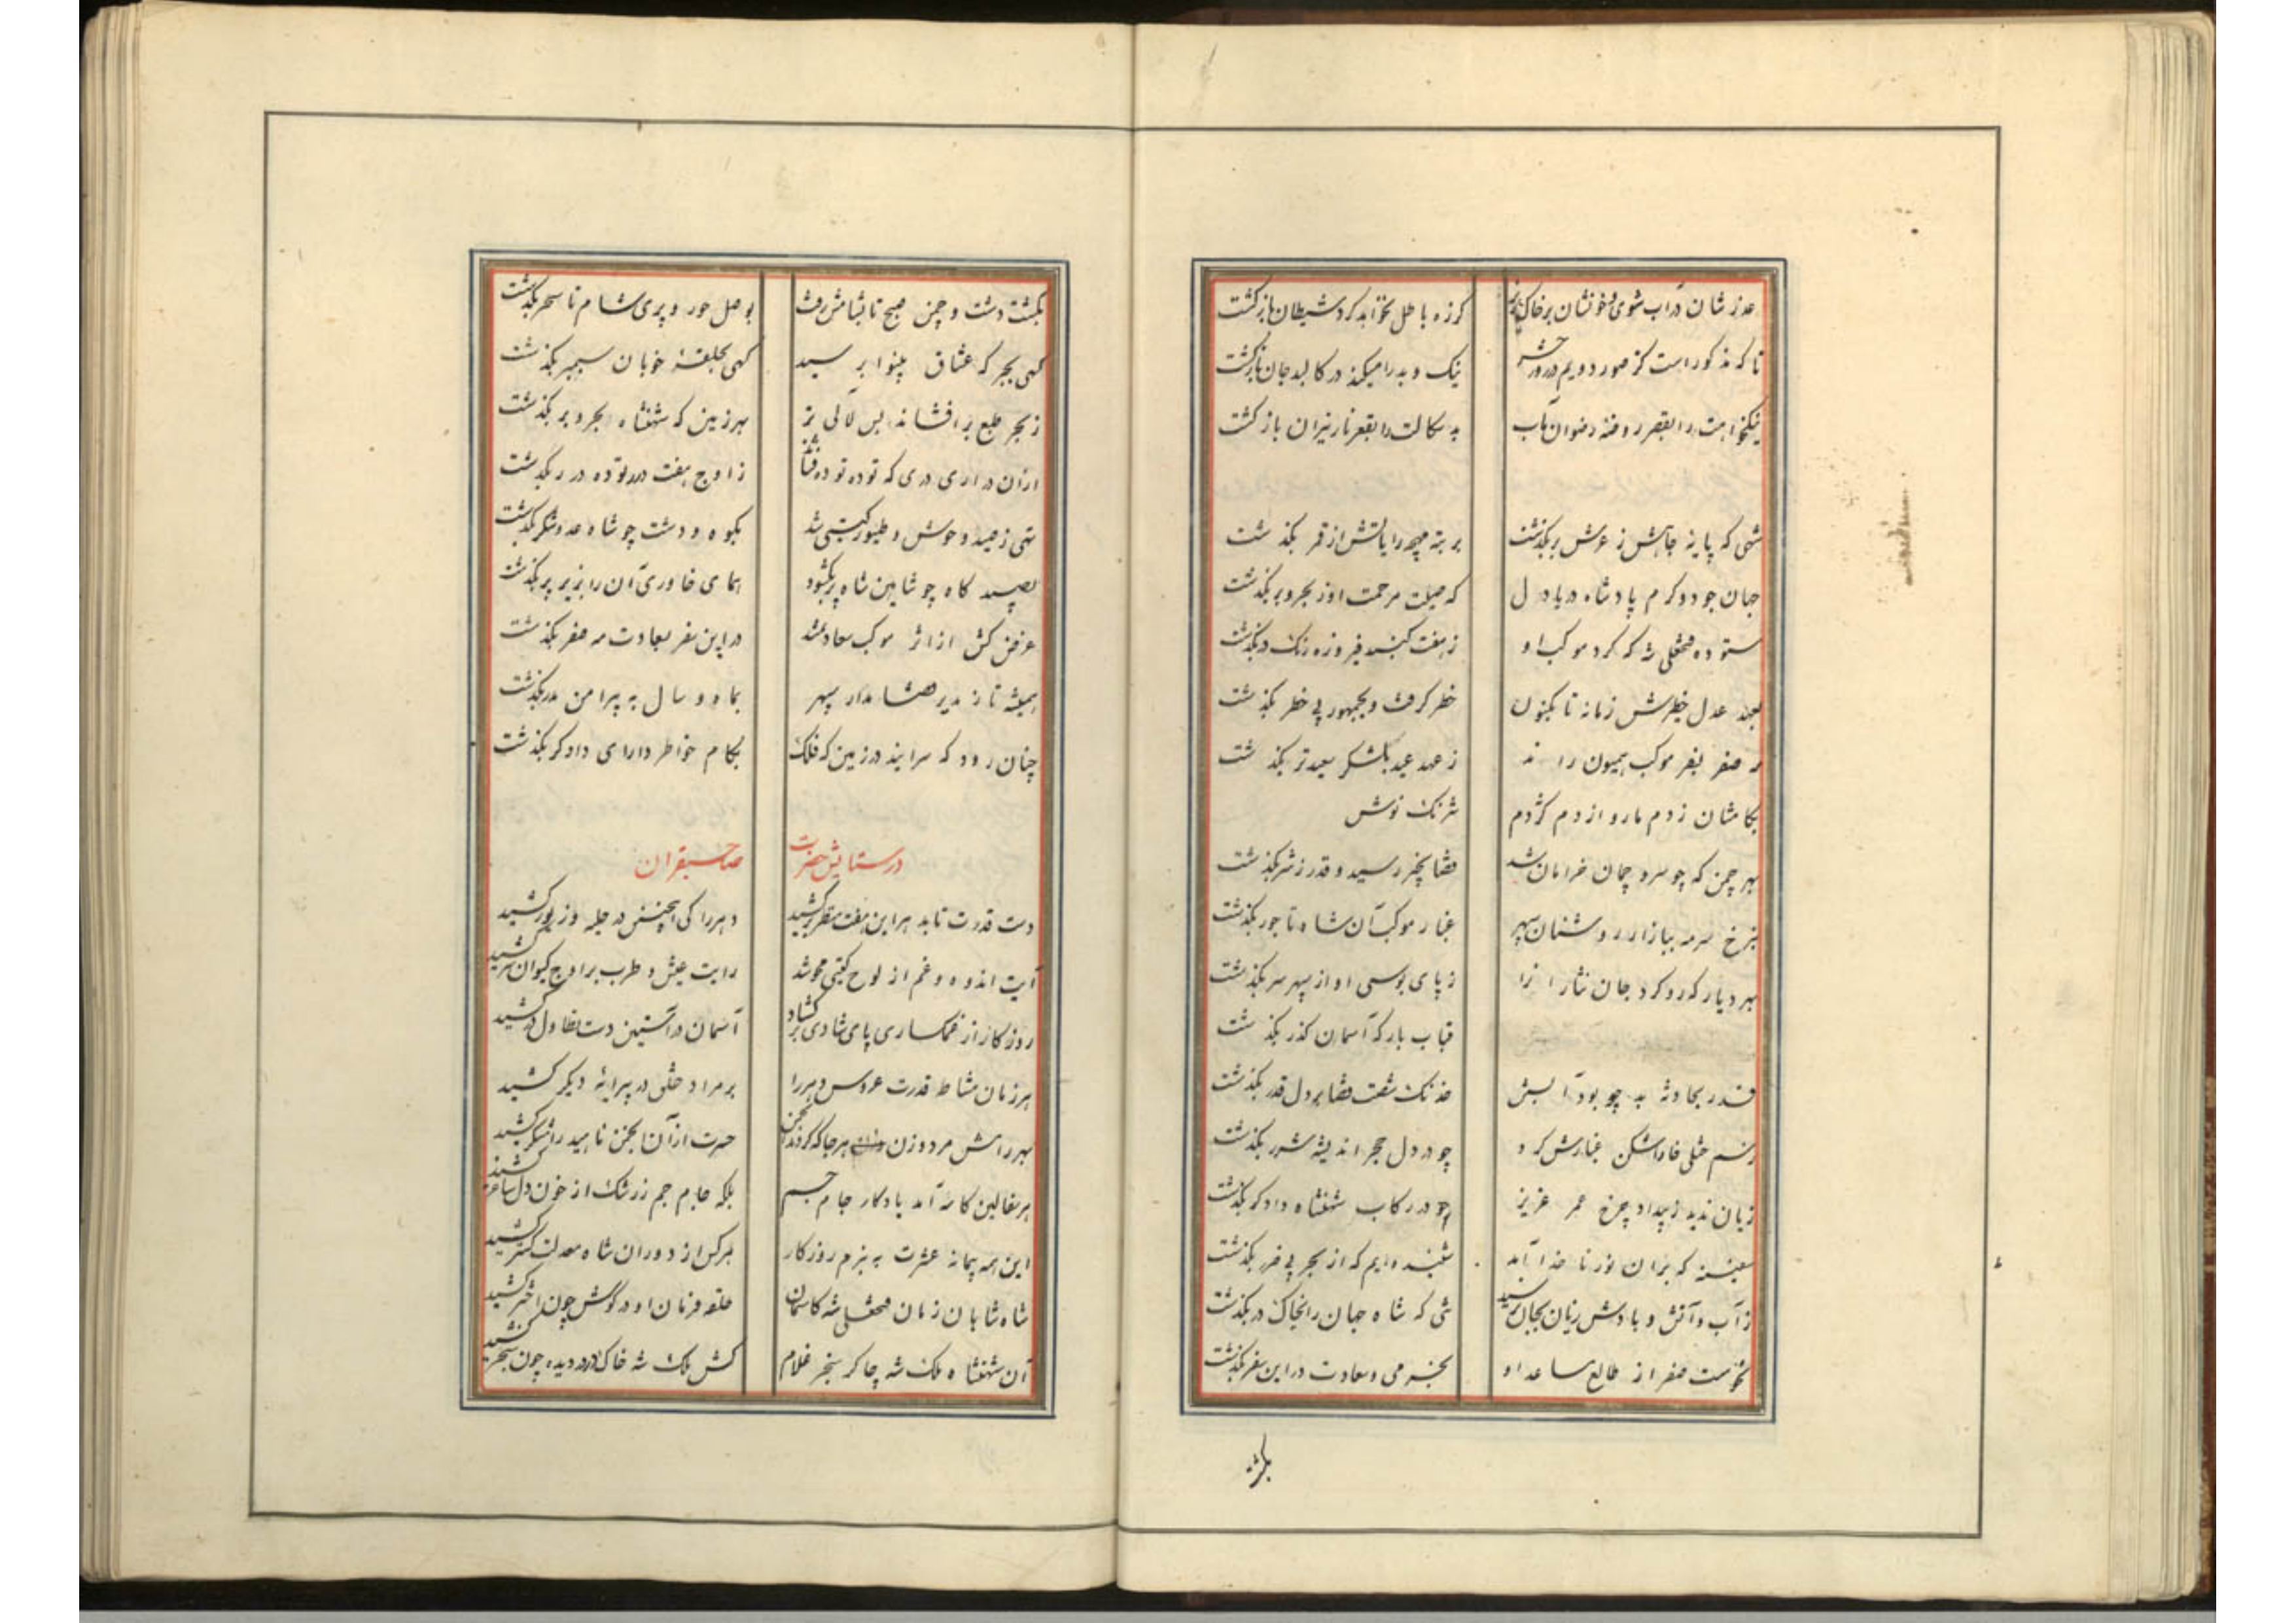 عذرشان در آب شوی و خونشان بر خاک ریز کز ره باطل نخواهد کرد شیطان بازگشت
تا که مذکور است کز صور دویم در روز حشر نیک و بد را میکند در کالبد جان بازگشت
نیکخواهت را بقصر روضه رضوان مآب بدسکالت را بقعر نار نیران بازگشت
شهی که پایه جاهش ز عرش بر بگذشت بر بته مهچه رایاتش از قمر بگذشت
جهان جود و کرم پادشاه دریادل که صیت مرحمت او ز بحر و بر بگذشت
ستوده فتحعلی شه که گرد موکب او ز هفت گنبد فیروزه رنگ در بگذشت
بعهد عدل خطیرش زمانه تا بکنون خطر گرفت و بجمهور بی خطر بگذشت
صفر بفر موکب همیون را ز عهد عید بلشکر سعیدتر بگذشت
بکامشان ز دم مار و از دم کژدم شرنک نوش
بهر چمن که چو سرو چمان خرامان شد قضا بخیر رسید و قدر ز شر بگذشت
بنرخ سرمه ببازار روشنان سپهر غبار موکب آن شاه تاجور بگذشت
بهر دیار که رو کرد جان نثار او را ز پای بوسی او از سپهر سر بگذشت
قباب بارگه آسمان گذر بگذشت
قدر بحادثه به چو بود آبش خدنک شست قضا بر دل قدر بگذشت
رسم خنلی خاراشکن غبارش کرد چو در دل حجر اندیشه شرر بگذشت
زیان ندید ز بیداد چرخ عمر عزیز چو در رکاب شهنشاه دادگر بگذشت
سفینه که بر آن نوز ناخدا آمد شنیده‌ایم که از بحر بی ضرر بگذشت
ز آب و آتش و بادش زیان بجان نرسید شهی که شاه جهان را بخاک در بگذشت
نحوست صفر از طالع مساعد او بخرمی و سعادت در این سفر بگذشت
بگشت
بگشت دشت و چمن صبح تا بشامش رفت بوصل حور و پری شام تا سحر بگذشت
گهی بجرگه عشاق بینوا بر سید گهی بحلقهٔ خوبان سیمبر بگذشت
ز بحر طبع برافشاند بس لآلی تر بهر زمین که شهنشاه بحر و بر بگذشت
از آن دراری دری که توده توده فشاند ز اوج هفت در توده در بگذشت
تهی ز صید وحوش و طیور گیتی شد بکوه و دشت چو شاه عدوشکر بگذشت
بصیدگاه چو شاهین شاه پر بگشود همای خاوری آن را بزیر پر بگذشت
غرض کش از اثر موکب سعادتمند در این سفر بسعادت مه صفر بگذشت
همیشه تا ز مدار سپهر بماه و سال به پیرامن مدر بگذشت
چنان رود که سرایند در زمین که فلک بکام خواطر دارای دادگر بگذشت
در ستایش حضرت صاحبقران
دست قدرت تا بد هر این هفت منظر بر کشید دهر را کی اینچنین در حله و زیور کشید
آیت اندوه و غم از لوح گیتی محو شد رایت عیش و طرب بر اوج کیوان سر کشید
روزگار از غمگساری پای شادی بر گشاد آسمان در آستین دست تطاول در کشید
هر زمان مشاطه قدرت عروس دهر را بر مراد خلق در پیرایهٔ دیگر کشید
بهر رامش مرد و زن هر جا که کردند انجمن حسرت از آن انجمن ناهید رامشگر کشید
هر سفالین کاسه آمد یادگار جام جم بلکه جام جم ز رشک از خون دل ساغر کشید
این همه پیمانه عشرت به بزم روزگار هر کس از دوران شاه معدلت گستر کشید
شاه شاهان زمان فتحعلی شه کاسمان حلقه فرمان او در گوش چون اختر کشید
آن شهنشاه ملک شه چاکر سنجر غلام کش ملک شه خاک در در دیده چون سنجر کشید